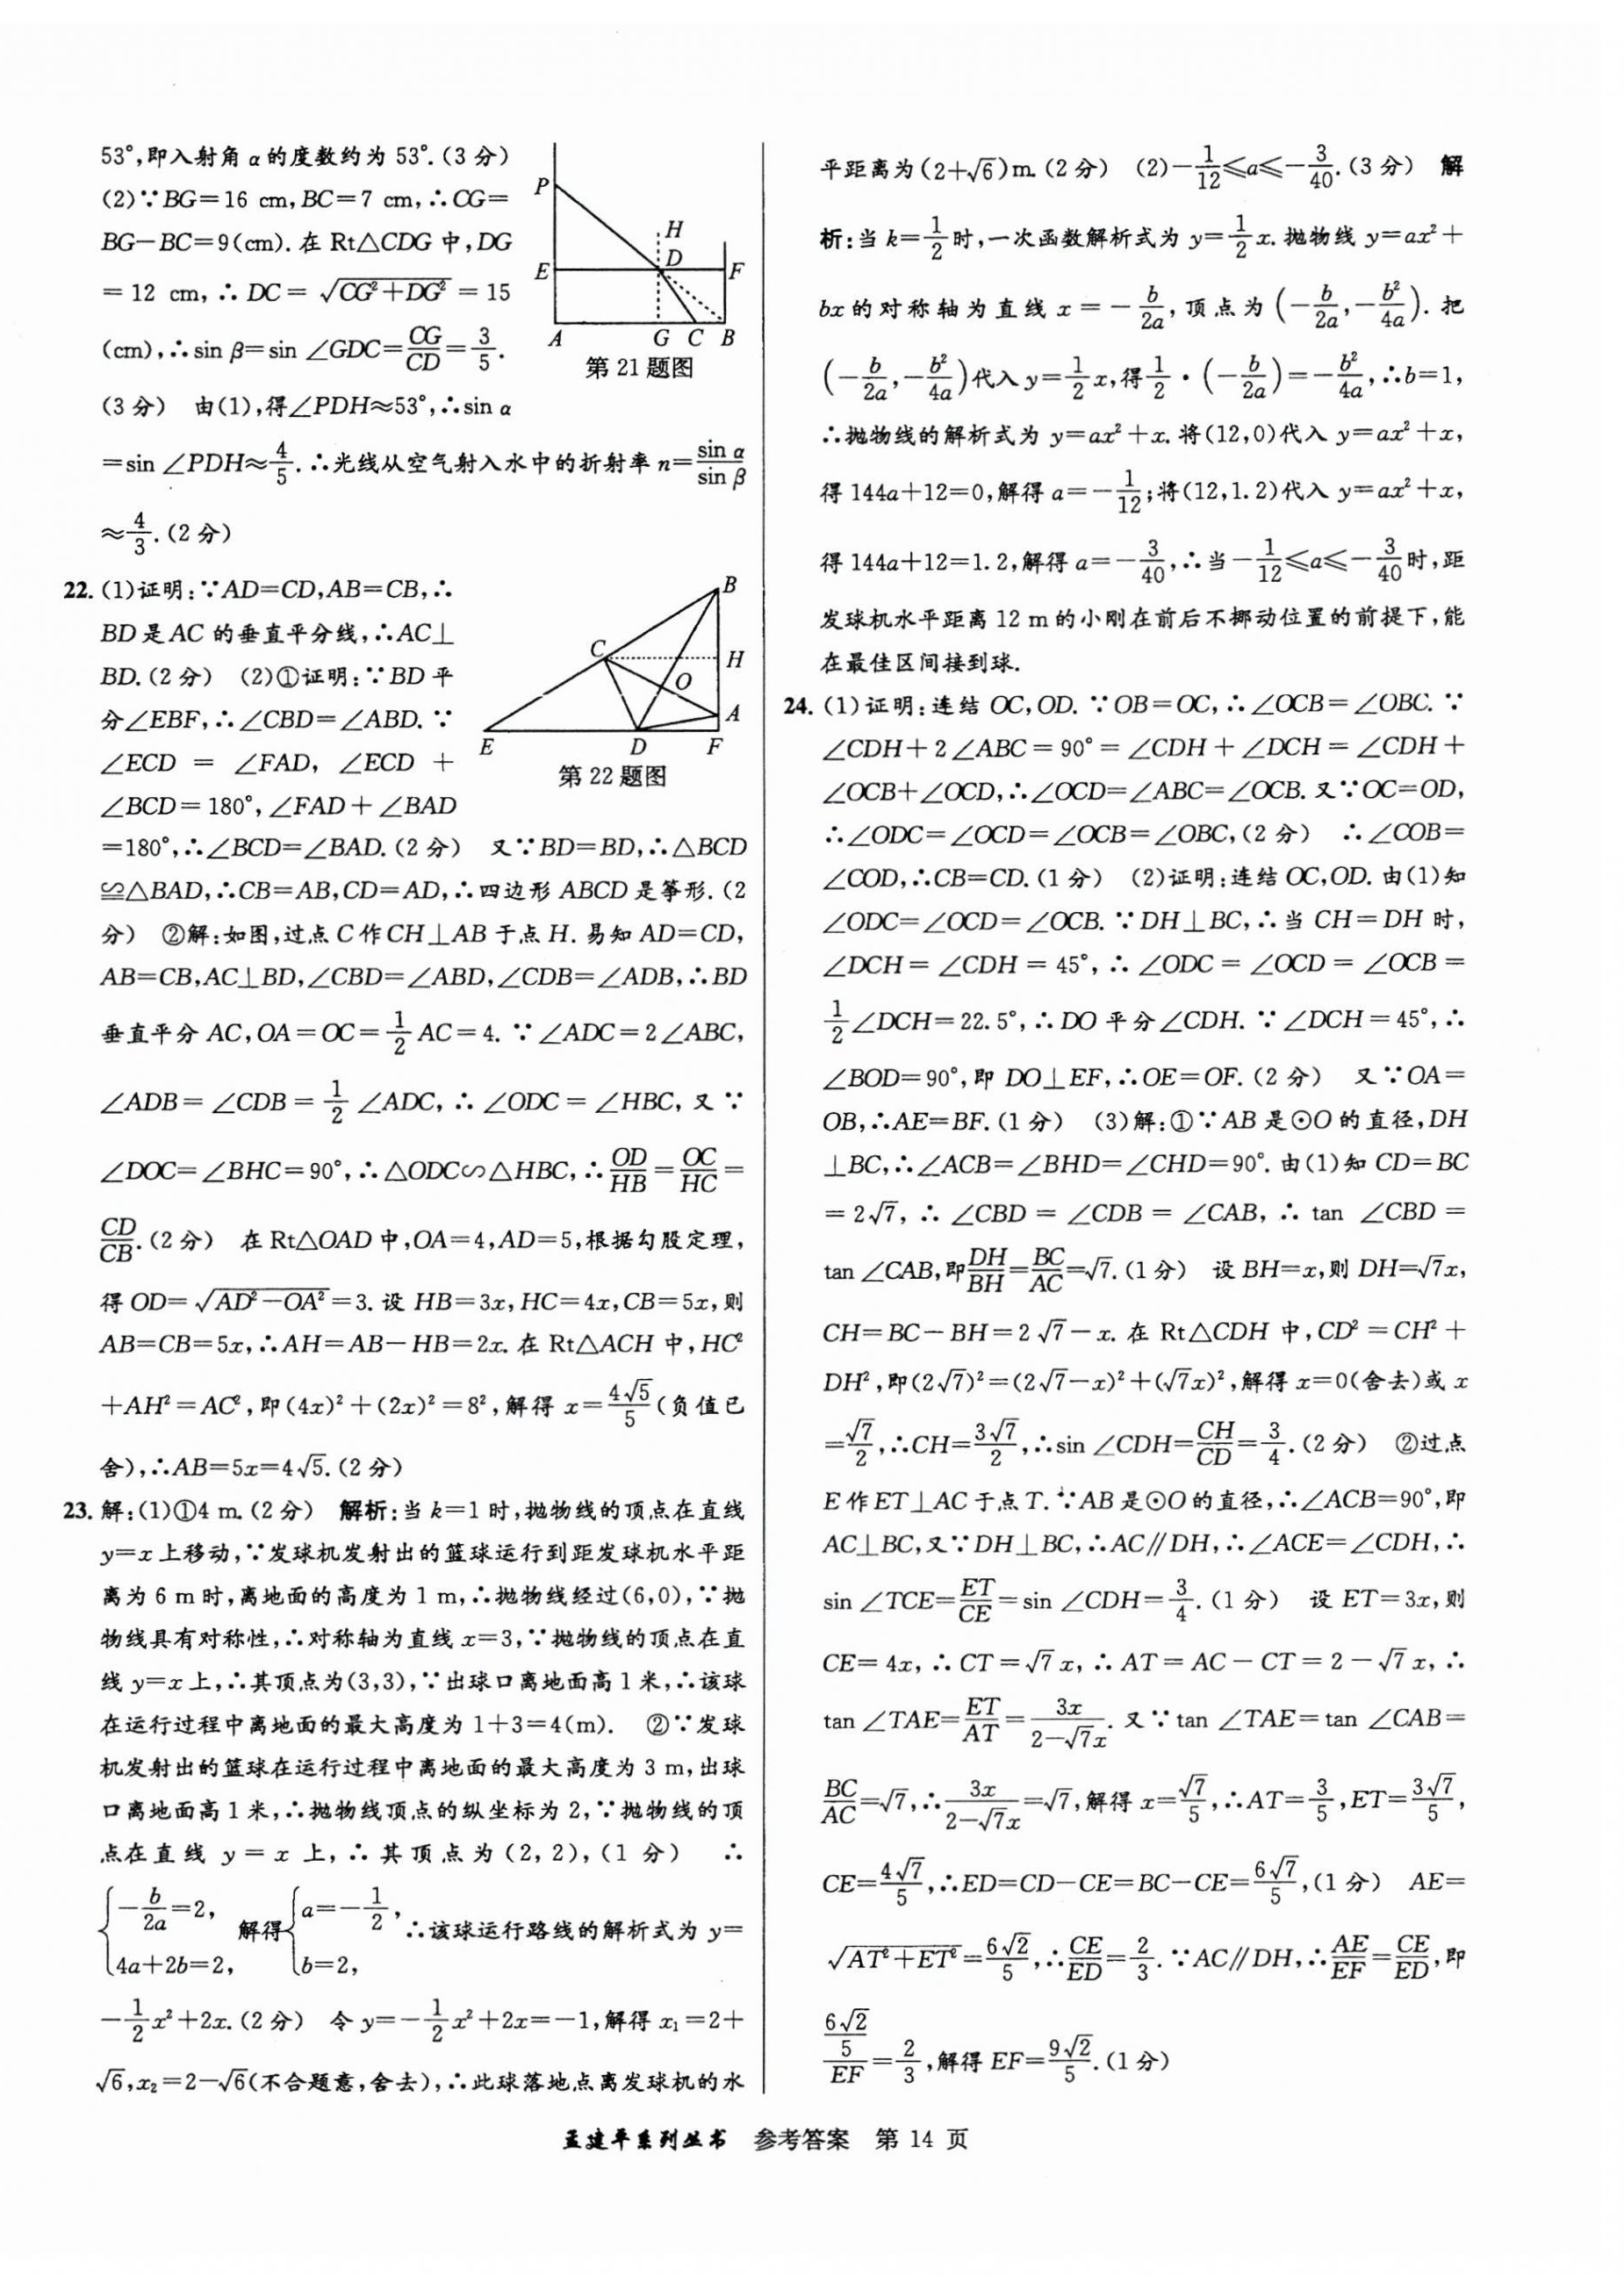 53°,即入射角 α 的度数约为 53°.(3 分)
(2)∵BG=16 cm,BC=7 cm,∴CG=
BG-BC=9(cm).在 Rt△CDG 中,DG
=12 cm,∴DC=√(CG²+DG²)=15
(cm),∴sin β=sin ∠GDC=CG/CD=3/5.
(3 分) 由(1),得∠PDH≈53°,∴sin α
=sin ∠PDH≈4/5.∴光线从空气射入水中的折射率 n=sin α/sin β
≈4/3.(2 分)
P
H
D
E
F
A
G C B
第 21 题图
22.(1)证明:∵AD=CD,AB=CB,∴
BD 是 AC 的垂直平分线,∴AC⊥
BD.(2 分) (2)①证明:∵BD 平
分∠EBF,∴∠CBD=∠ABD.∵
∠ECD = ∠FAD, ∠ECD +
∠BCD=180°,∠FAD+∠BAD
=180°,∴∠BCD=∠BAD.(2 分) 又∵BD=BD,∴△BCD
≌△BAD,∴CB=AB,CD=AD,∴四边形 ABCD 是筝形.(2
分) ②解:如图,过点 C 作 CH⊥AB 于点 H.易知 AD=CD,
AB=CB,AC⊥BD,∠CBD=∠ABD,∠CDB=∠ADB,∴BD
垂直平分 AC,OA=OC=1/2 AC=4.∵∠ADC=2∠ABC,
∠ADB=∠CDB=1/2∠ADC,∴∠ODC=∠HBC,又∵
∠DOC=∠BHC=90°,∴△ODC∽△HBC,∴OD/HB=OC/HC=
CD/CB.(2 分) 在 Rt△OAD 中,OA=4,AD=5,根据勾股定理,
得 OD=√(AD²-OA²)=3.设 HB=3x,HC=4x,CB=5x,则
AB=CB=5x,∴AH=AB-HB=2x.在 Rt△ACH 中,HC²
+AH²=AC²,即(4x)²+(2x)²=8²,解得 x=4√5/5(负值已
舍),∴AB=5x=4√5.(2 分)
B
C
H
O
A
E
D
F
第 22 题图
23.解:(1)①4 m.(2 分) 解析:当 k=1 时,抛物线的顶点在直线
y=x 上移动,∵发球机发射出的篮球运行到距发球机水平距
离为 6 m 时,离地面的高度为 1 m,∴抛物线经过(6,0),∵抛
物线具有对称性,∴对称轴为直线 x=3,∵抛物线的顶点在直
线 y=x 上,∴其顶点为(3,3),∵出球口离地面高 1 米,∴该球
在运行过程中离地面的最大高度为 1+3=4(m). ②∵发球
机发射出的篮球在运行过程中离地面的最大高度为 3 m,出球
口离地面高 1 米,∴抛物线顶点的纵坐标为 2,∵抛物线的顶
点在直线 y=x 上,∴其顶点为(2,2),(1 分) ∴
{-b/2a=2, 4a+2b=2, 解得{a=-1/2, b=2, ∴该球运行路线的解析式为 y=
-1/2x²+2x.(2 分) 令 y=-1/2x²+2x=-1,解得 x₁=2+
√6,x₂=2-√6(不合题意,舍去),∴此球落地点离发球机的水
平距离为(2+√6)m.(2 分) (2)-1/12≤a≤-3/40.(3 分) 解
析:当 k=1/2时,一次函数解析式为 y=1/2x.抛物线 y=ax²+
bx 的对称轴为直线 x=-b/2a,顶点为(-b/2a,-b²/4a).把
(-b/2a,-b²/4a)代入 y=1/2x,得1/2·(-b/2a)=-b²/4a,∴b=1,
∴抛物线的解析式为 y=ax²+x.将(12,0)代入 y=ax²+x,
得 144a+12=0,解得 a=-1/12;将(12,1.2)代入 y=ax²+x,
得 144a+12=1.2,解得 a=-3/40,∴当-1/12≤a≤-3/40时,距
发球机水平距离 12 m 的小刚在前后不挪动位置的前提下,能
在最佳区间接到球.
24.(1)证明:连结 OC,OD.∵OB=OC,∴∠OCB=∠OBC.∵
∠CDH+2∠ABC=90°=∠CDH+∠DCH=∠CDH+
∠OCB+∠OCD,∴∠OCD=∠ABC=∠OCB.又∵OC=OD,
∴∠ODC=∠OCD=∠OCB=∠OBC,(2 分) ∴∠COB=
∠COD,∴CB=CD.(1 分) (2)证明:连结 OC,OD.由(1)知
∠ODC=∠OCD=∠OCB.∵DH⊥BC,∴当 CH=DH 时,
∠DCH=∠CDH=45°,∴∠ODC=∠OCD=∠OCB=
1/2∠DCH=22.5°,∴DO 平分∠CDH.∵∠DCH=45°,∴
∠BOD=90°,即 DO⊥EF,∴OE=OF.(2 分) 又∵OA=
OB,∴AE=BF.(1 分) (3)解:①∵AB 是⊙O 的直径,DH
⊥BC,∴∠ACB=∠BHD=∠CHD=90°.由(1)知 CD=BC
=2√7,∴∠CBD=∠CDB=∠CAB,∴tan ∠CBD=
tan ∠CAB,即DH/BH=BC/AC=√7.(1 分) 设 BH=x,则 DH=√7x,
CH=BC-BH=2√7-x.在 Rt△CDH 中,CD²=CH²+
DH²,即(2√7)²=(2√7-x)²+(√7x)²,解得 x=0(舍去)或 x
=√7/2,∴CH=3√7/2,∴sin ∠CDH=CH/CD=3/4.(2 分) ②过点
E 作 ET⊥AC 于点 T.∵AB 是⊙O 的直径,∴∠ACB=90°,即
AC⊥BC,又∵DH⊥BC,∴AC∥DH,∴∠ACE=∠CDH,∴
sin ∠TCE=ET/CE=sin ∠CDH=3/4.(1 分) 设 ET=3x,则
CE=4x,∴CT=√7x,∴AT=AC-CT=2-√7x,∴
tan ∠TAE=ET/AT=3x/(2-√7x).又∵tan ∠TAE=tan ∠CAB=
BC/AC=√7,∴3x/(2-√7x)=√7,解得 x=√7/5,∴AT=3/5,ET=3√7/5,
CE=4√7/5,∴ED=CD-CE=BC-CE=6√7/5,(1 分) AE=
√(AT²+ET²)=6√2/5,∴CE/ED=2/3.∵AC∥DH,∴AE/EF=CE/ED,即
(6√2/5)/EF=2/3,解得 EF=9√2/5.(1 分)
孟建平系列丛书 参考答案 第 14 页